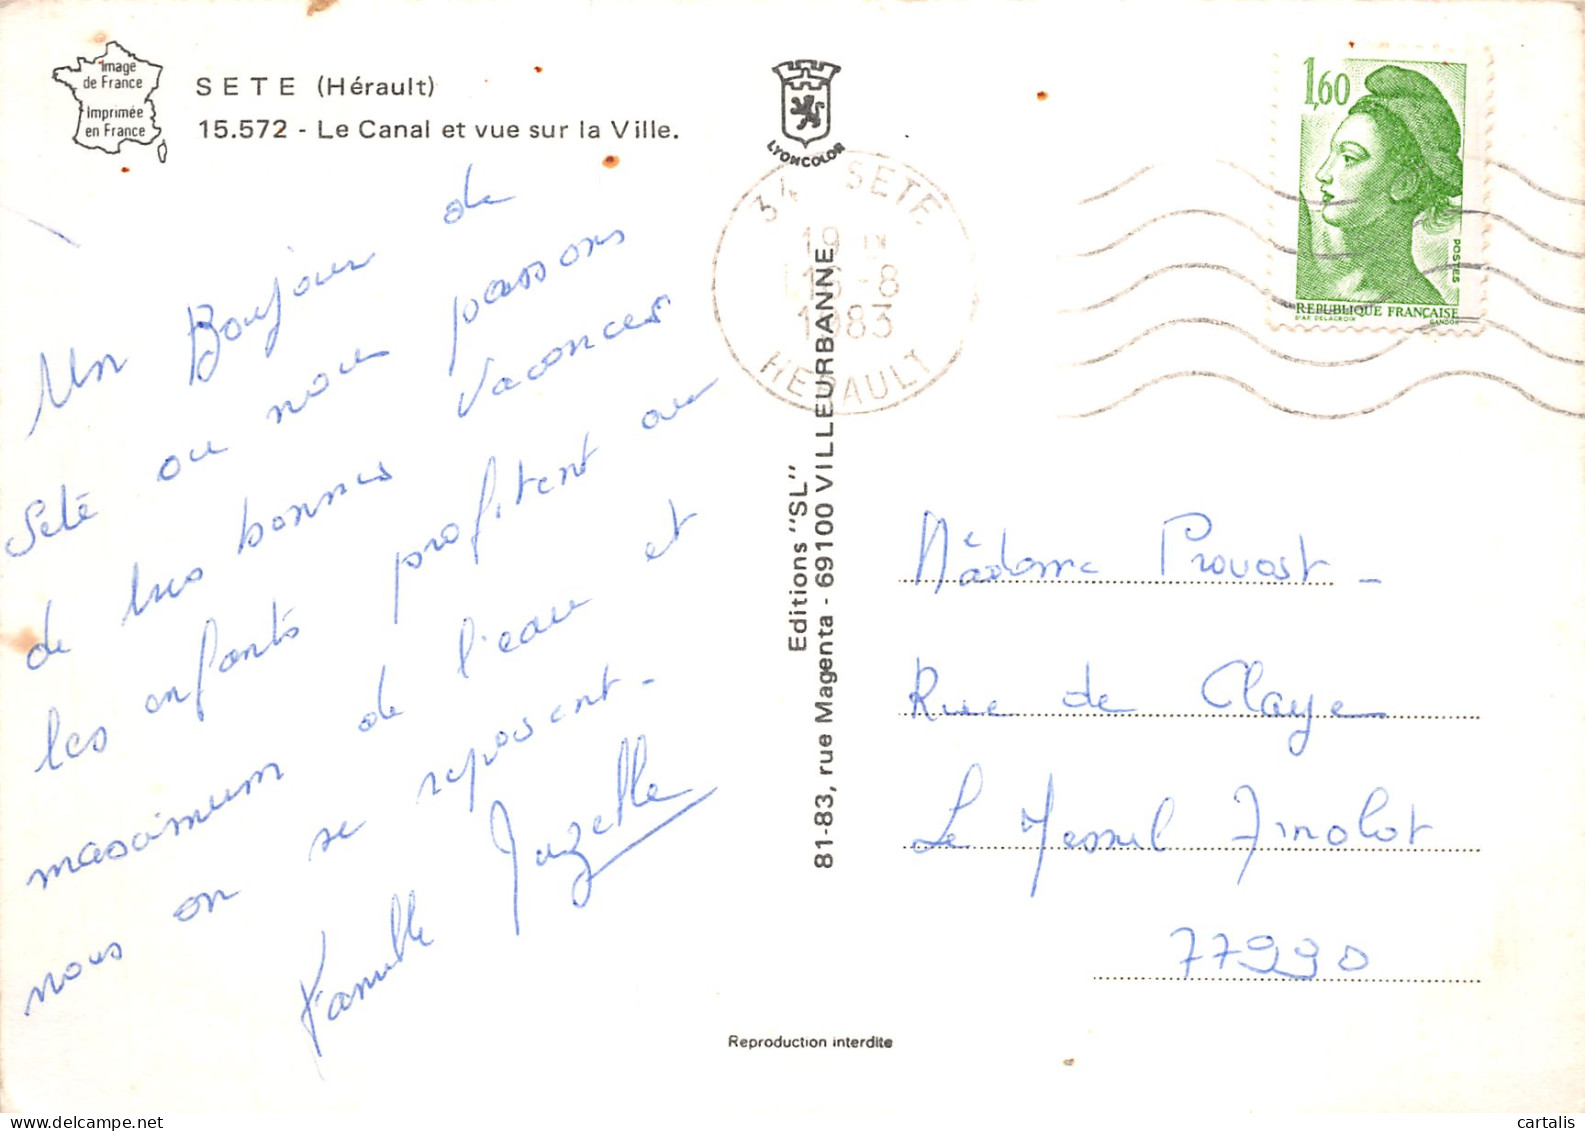 Image
de France
Imprimée
en France
SETE (Hérault)
15.572 - Le Canal et vue sur la Ville.
LYONCOLOR
34 SETE
19 H
16-8
1983
HERAULT
1,60
POSTES
REPUBLIQUE FRANÇAISE
D'AP. DELACROIX
GANDON
Un Bonjour de
Seté ou nous passons
de tres bonnes vacances
les enfants profitent au
maximum de l'eau et
nous on se reposent-
Famille
Editions "SL"
81-83, rue Magenta - 69100 VILLEURBANNE
Mâdame Provost -
Rue de Claye
Le Mesnil Amelot
77990
Reproduction interdite
cartalis